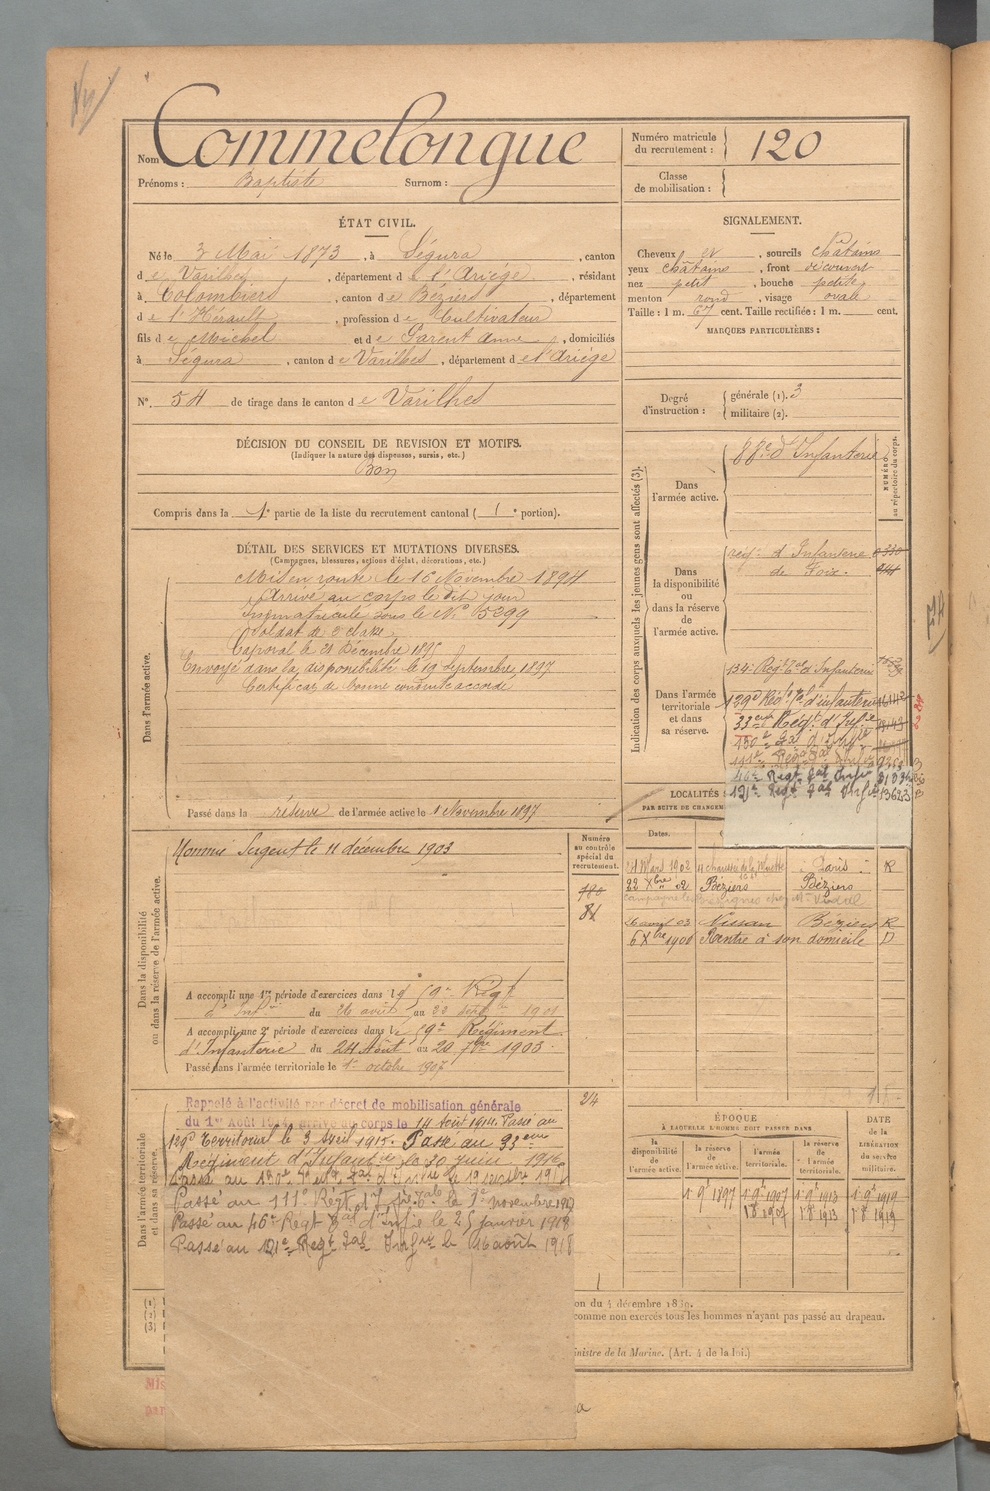 Nom Commelongue
Prénoms : Baptiste Surnom :
Numéro matricule du recrutement : 120
Classe de mobilisation :
ÉTAT CIVIL.
Né le 3 Mai 1873, à Ségura, canton
de Varilhes, département de l'Ariége, résidant
à Colombiers, canton de Béziers, département
de l'Hérault, profession de Cultivateur
fils de Michel et de Parent Anne, domiciliés
à Ségura, canton de Varilhes, département de l'Ariége
N° 54 de tirage dans le canton de Varilhes
SIGNALEMENT.
Cheveux et, sourcils châtains
yeux châtains, front découvert
nez petit, bouche petite
menton rond, visage ovale
Taille : 1 m. 67 cent. Taille rectifiée : 1 m. cent.
MARQUES PARTICULIÈRES :
Degré d'instruction : générale (1). 3
militaire (2).
DÉCISION DU CONSEIL DE REVISION ET MOTIFS.
(Indiquer la nature des dispenses, sursis, etc.)
Bon
Compris dans la 1e partie de la liste du recrutement cantonal ( 1e portion).
DÉTAIL DES SERVICES ET MUTATIONS DIVERSES.
(Campagnes, blessures, actions d'éclat, décorations, etc.)
Dans l'armée active.
Mis en route le 16 Novembre 1894
Arrivé au corps le dit jour
Immatriculé sous le N° 15299
Soldat de 2e classe
Caporal le 21 Décembre 1895
Envoyé dans la disponibilité le 19 Septembre 1897
Certificat de bonne conduite accordé
Passé dans la réserve de l'armée active le 1 Novembre 1897
Indication des corps auxquels les jeunes gens sont affectés (3).
NUMÉRO au répertoire du corps.
Dans l'armée active.
88e d'Infanterie
Dans la disponibilité ou dans la réserve de l'armée active.
régt d'Infanterie
de Foix.
Dans l'armée territoriale et dans sa réserve.
134e Régt Tal d'Infanterie
129e Régt Tal d'infanterie
Régt d'Infie
121e Regt Tal Infie 13623
LOCALITÉS
PAR SUITE DE CHANGEM
Dates.
Paris R
22 Xbre 02 Béziers Béziers
26 avril 03 Nissan Béziers R
6 Xbre 1906 Rentre à son domicile D
Dans la disponibilité ou dans la réserve de l'armée active.
Numéro au contrôle spécial du recrutement.
Nommé Sergent le 11 décembre 1903
A accompli une 1re période d'exercices dans le 59e Régt
d'Infie du 26 août au 22 1901
A accompli une 2e période d'exercices dans le 59e Régiment
d'Infanterie du 24 Août au 20 7bre 1903.
Passé dans l'armée territoriale le 1er octobre 1907
Dans l'armée territoriale et dans sa réserve.
Rappelé à l'activité par décret de mobilisation générale
du 1er Août 1914, arrivé au corps le 14 Août 1914. Passé au
129e Territorial le 3 Avril 1915. Passé au
Régiment d'Infanterie le 30 juin 1916
Passé au 111e Régt Tal Infie le 1er novembre 1917
Passé au 46e Regt Tal d'Infie le 25 janvier 1918
Passé au 121e Regt Tal Infie le 16 août 1918
ÉPOQUE
À LAQUELLE L'HOMME DOIT PASSER DANS
la disponibilité de l'armée active.
la réserve de l'armée active.
l'armée territoriale.
la réserve de l'armée territoriale.
DATE de la LIBÉRATION du service militaire.
1 9bre 1897 1 9bre 1907 1 9bre 1913 1 9bre 1919
1 8bre 1907 1 8bre 1913 1 8bre 1919
(1)
(2)
(3)
on du 4 décembre 1889.
comme non exercés tous les hommes n'ayant pas passé au drapeau.
inistre de la Marine. (Art. 4 de la loi.)